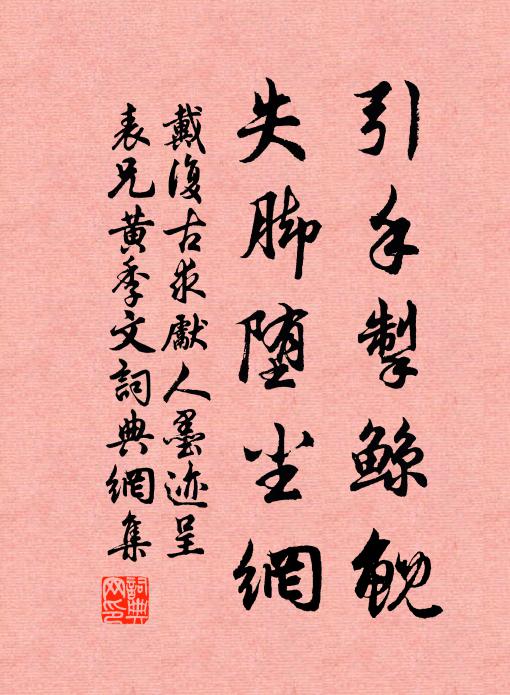 引手掣鲸鲵
失脚堕尘網
戴復古求獻人墨迹呈
表兄黄季文詞典網集
詞典網印